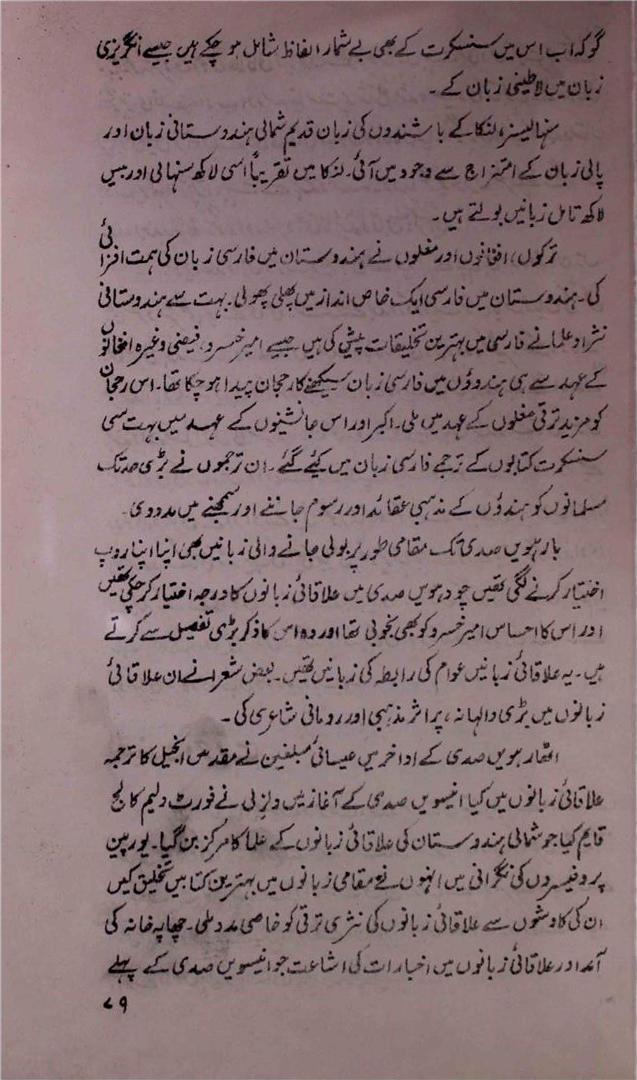 گو کہ اب اس میں سنسکرت کے بھی بے شمار الفاظ شامل ہو چکے ہیں جیسے انگریزی
زبان میں لاطینی زبان کے۔
سنہالیسز، لنکا کے باشندوں کی زبان قدیم شمالی ہندوستانی زبان اور
پالی زبان کے امتزاج سے وجود میں آئی۔ لنکا میں تقریباً اسی لاکھ سنہالی اور بیس
لاکھ تامل زبانیں بولتے ہیں۔
ترکوں، افغانوں اور مغلوں نے ہندوستان میں فارسی زبان کی ہمت افزائی
کی۔ ہندوستان میں فارسی ایک خاص انداز میں پھلی پھولی۔ بہت سے ہندوستانی
نژاد علما نے فارسی میں بہترین تخلیقات پیش کی ہیں جیسے امیر خسرو، فیضی وغیرہ افغانوں
کے عہد سے ہی ہندوؤں میں فارسی زبان سیکھنے کا رجحان پیدا ہو چکا تھا۔ اس رجحان
کو مزید ترقی مغلوں کے عہد میں ملی۔ اکبر اور اس جانشینوں کے عہد میں بہت سی
سنسکرت کتابوں کے ترجمے فارسی زبان میں کیئے گئے۔ ان ترجموں نے بڑی حد تک
مسلمانوں کو ہندؤں کے مذہبی عقائد اور رسوم جاننے اور سمجھنے میں مدد دی۔
بارہویں صدی تک مقامی طور پر بولی جانے والی زبانیں بھی اپنا اپنا روپ
اختیار کرنے لگی تھیں چودہویں صدی میں علاقائی زبانوں کا درجہ اختیار کر چکی تھیں
اور اس کا احساس امیر خسرو کو بھی بخوبی تھا اور وہ اس کا ذکر بڑی تفصیل سے کرتے
ہیں۔ یہ علاقائی زبانیں عوام کی رابطہ کی زبانیں تھیں۔ بعض شعرا نے ان علاقائی
زبانوں میں بڑی والہانہ، پر اثر مذہبی اور رومانی شاعری کی۔
اٹھارہویں صدی کے اواخر میں عیسائی مبلغین نے مقدس انجیل کا ترجمہ
علاقائی زبانوں میں کیا انیسویں صدی کے آغاز میں ولزلی نے فورٹ ولیم کالج
قایم کیا جو شمالی ہندوستان کی علاقائی زبانوں کے علما کا مرکز بن گیا۔ یورپین
پروفیسروں کی نگرانی میں انہوں نے مقامی زبانوں میں بہترین کتابیں تخلیق کیں
ان کی کاوشوں سے علاقائی زبانوں کی نثری ترقی کو خاصی مدد ملی۔ چھاپہ خانہ کی
آمد اور علاقائی زبانوں میں اخبارات کی اشاعت جو انیسویں صدی کے پہلے
۷۹